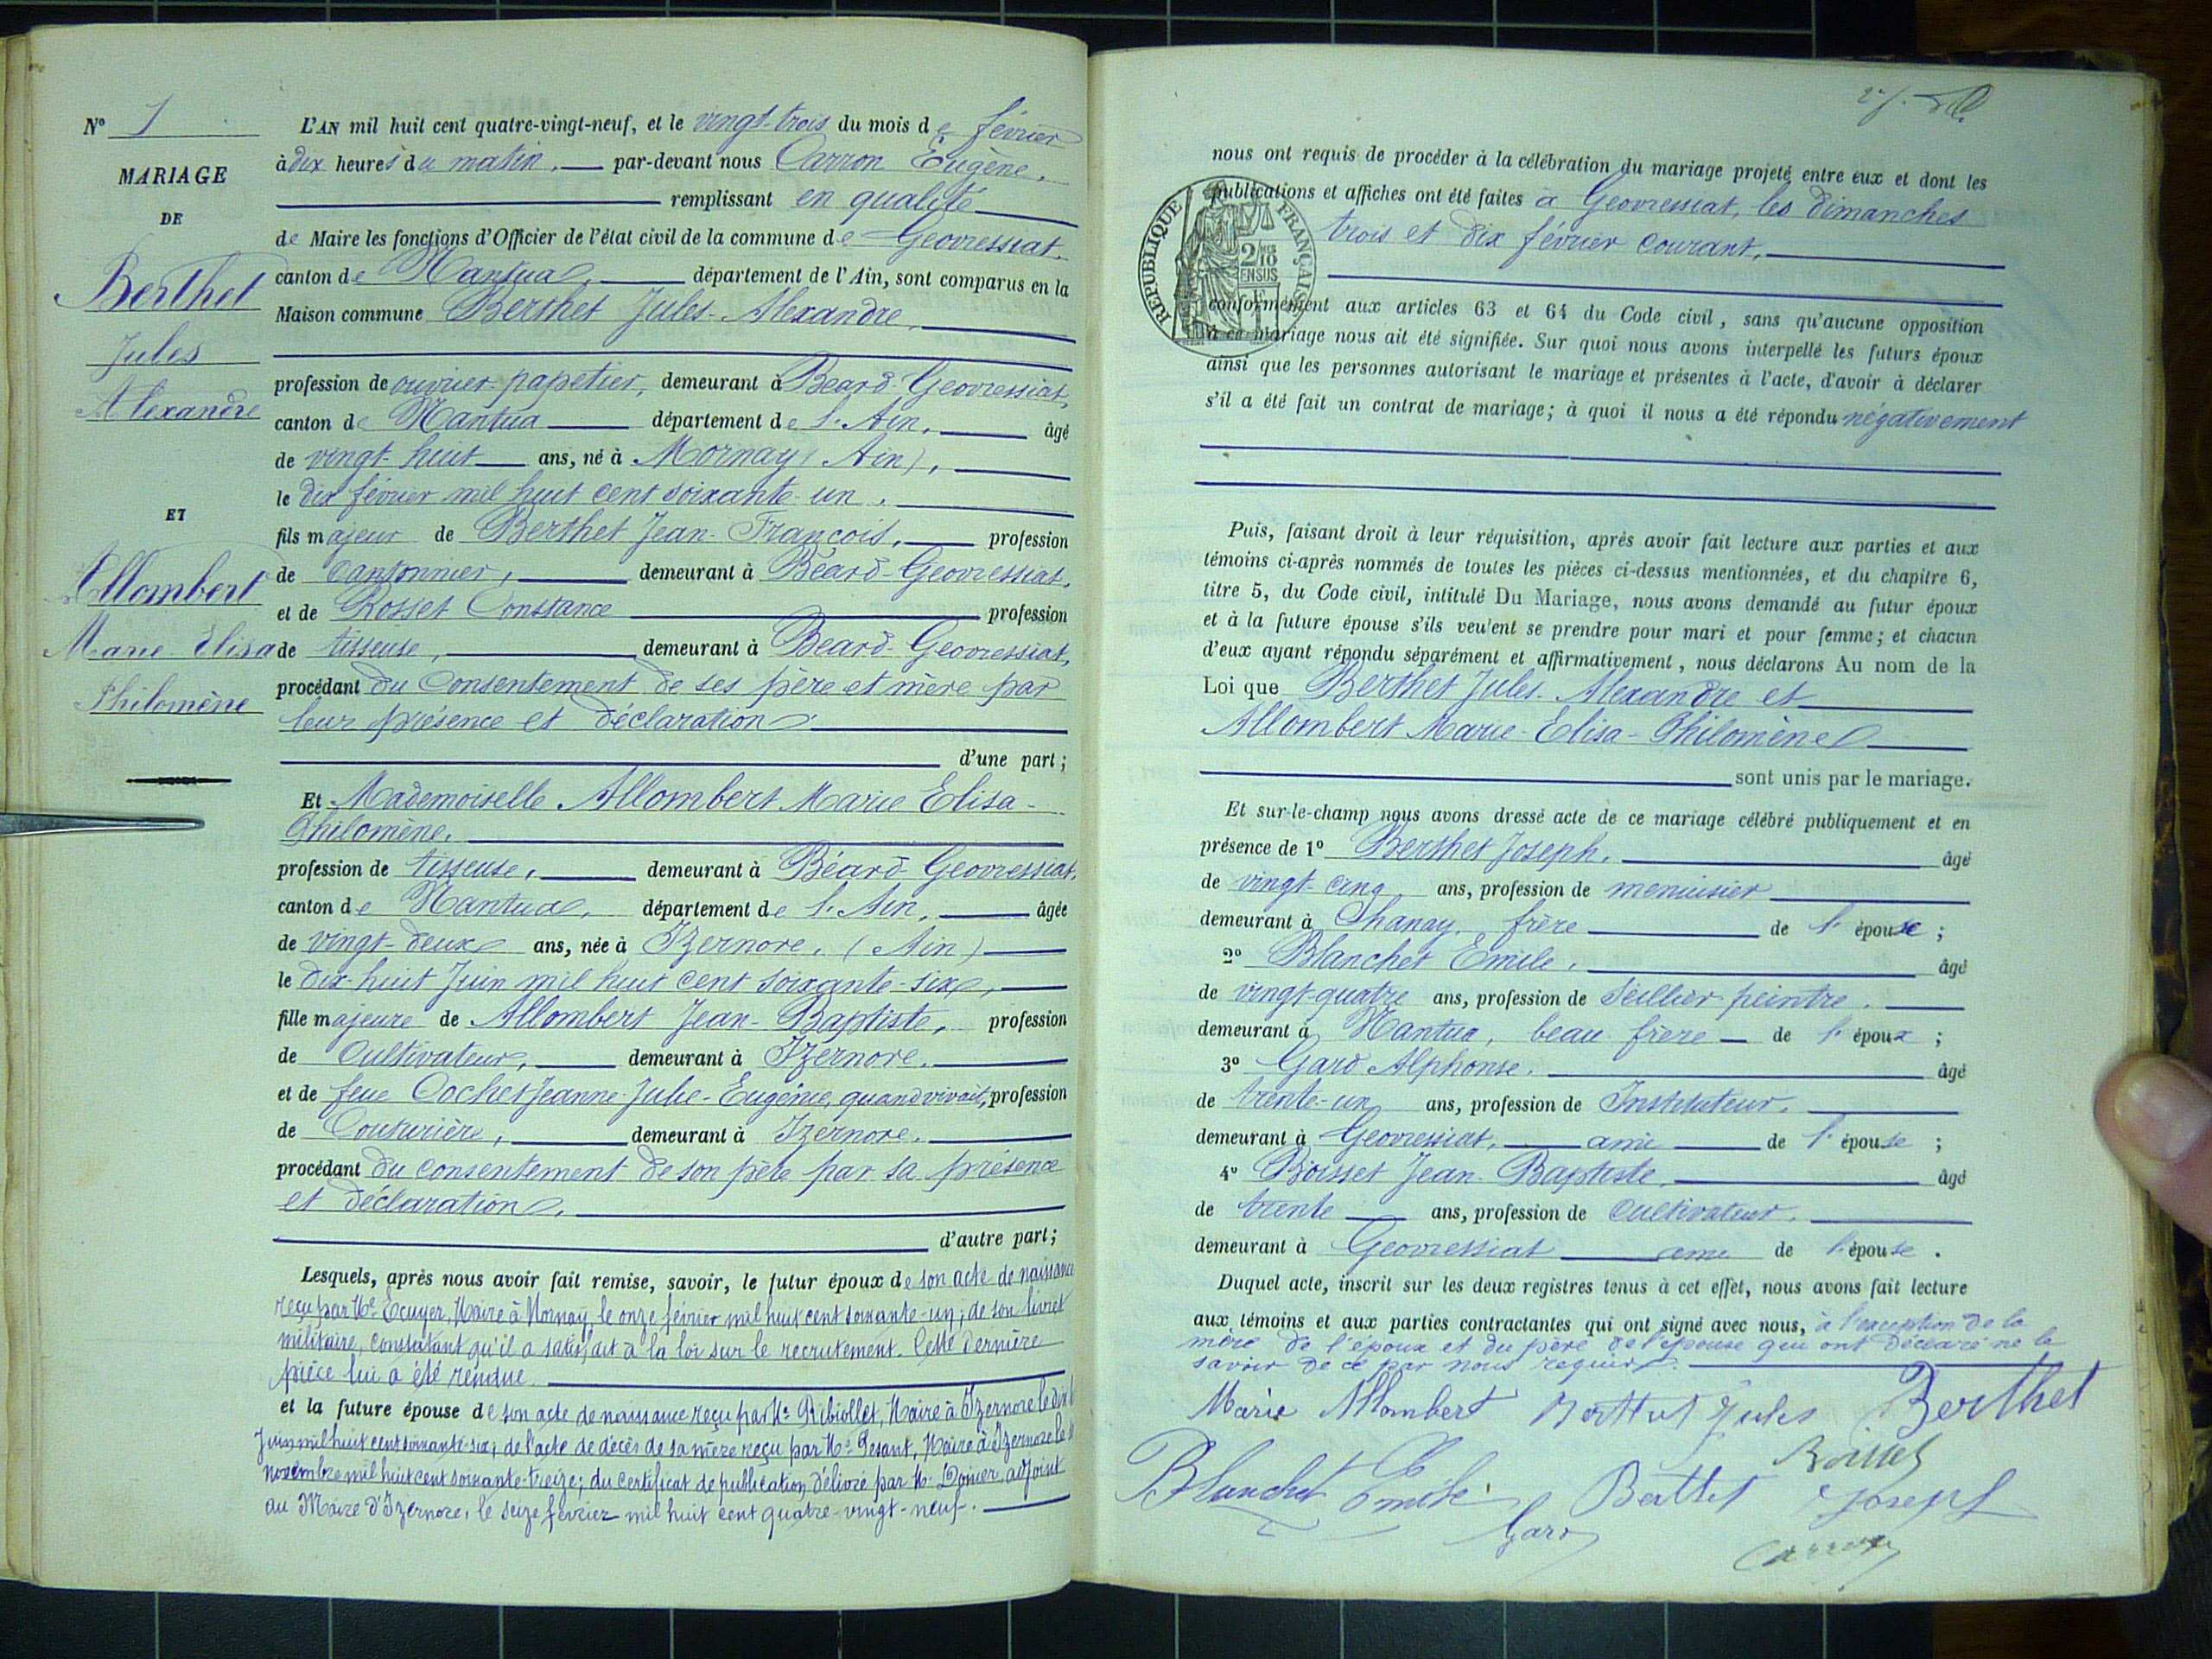 N° 1
MARIAGE
DE
Berthet
Jules
Alexandre
ET
Allombert
Marie Elisa
Philomène
L'AN mil huit cent quatre-vingt-neuf, et le vingt-trois du mois de février
à dix heures du matin, par-devant nous Carron Eugène,
remplissant en qualité
de Maire les fonctions d'Officier de l'état civil de la commune de Geovressiat,
canton de Nantua, département de l'Ain, sont comparus en la
Maison commune Berthet Jules-Alexandre,
profession de ouvrier papetier, demeurant à Béard-Geovressiat,
canton de Nantua département de l'Ain, âgé
de vingt-huit ans, né à Mornay (Ain),
le dix février mil huit cent soixante-un,
fils majeur de Berthet Jean-François, profession
de cantonnier, demeurant à Béard-Geovressiat,
et de Rosset Constance profession
de tisseuse, demeurant à Béard-Geovressiat,
procédant du consentement de ses père et mère par
leur présence et déclaration
d'une part;
Et Mademoiselle Allombert Marie Elisa-
Philomène,
profession de tisseuse, demeurant à Béard-Geovressiat,
canton de Nantua, département de l'Ain, âgée
de vingt-deux ans, née à Izernore, (Ain)
le dix-huit Juin mil huit cent soixante-six,
fille majeure de Allombert Jean-Baptiste, profession
de Cultivateur, demeurant à Izernore,
et de feue Cochet Jeanne-Julie-Eugénie, quand vivait, profession
de Couturière, demeurant à Izernore,
procédant du consentement de son père par sa présence
et déclaration,
d'autre part;
Lesquels, après nous avoir fait remise, savoir, le futur époux de son acte de naissance
reçu par Mr Ecuyer, Maire à Mornay, le onze février mil huit cent soixante-un; de son livret
militaire, constatant qu'il a satisfait à la loi sur le recrutement. Cette dernière
pièce lui a été rendue.
et la future épouse de son acte de naissance reçu par Mr Ribiollet, Maire à Izernore le dix
Juin mil huit cent soixante-six; de l'acte de décès de sa mère reçu par Mr Pesant, Maire à Izernore le
novembre mil huit cent soixante-treize; du certificat de publication délivré par Mr adjoint
au Maire d'Izernore, le seize février mil huit cent quatre-vingt-neuf.
nous ont requis de procéder à la célébration du mariage projeté entre eux et dont les
publications et affiches ont été faites à Geovressiat, les dimanches
trois et dix février courant,
RÉPUBLIQUE FRANÇAISE
2/10
EN SUS
conformément aux articles 63 et 64 du Code civil, sans qu'aucune opposition
à ce mariage nous ait été signifiée. Sur quoi nous avons interpellé les futurs époux
ainsi que les personnes autorisant le mariage et présentes à l'acte, d'avoir à déclarer
s'il a été fait un contrat de mariage; à quoi il nous a été répondu négativement
Puis, faisant droit à leur réquisition, après avoir fait lecture aux parties et aux
témoins ci-après nommés de toutes les pièces ci-dessus mentionnées, et du chapitre 6,
titre 5, du Code civil, intitulé Du Mariage, nous avons demandé au futur époux
et à la future épouse s'ils veulent se prendre pour mari et pour femme; et chacun
d'eux ayant répondu séparément et affirmativement, nous déclarons Au nom de la
Loi que Berthet Jules-Alexandre et
Allombert Marie-Elisa-Philomène
sont unis par le mariage.
Et sur-le-champ nous avons dressé acte de ce mariage célébré publiquement et en
présence de 1° Berthet Joseph, âgé
de vingt-cinq ans, profession de menuisier
demeurant à Chanay, frère de l'époux;
2° Blanchet Emile, âgé
de vingt-quatre ans, profession de Sellier-peintre,
demeurant à Nantua, beau-frère de l'époux;
3° Gard Alphonse, âgé
de trente-un ans, profession de Instituteur,
demeurant à Geovressiat, ami de l'épouse;
4° Boisset Jean-Baptiste, âgé
de trente ans, profession de Cultivateur,
demeurant à Geovressiat ami de l'épouse.
Duquel acte, inscrit sur les deux registres tenus à cet effet, nous avons fait lecture
aux témoins et aux parties contractantes qui ont signé avec nous, à l'exception de la
mère de l'époux et du père de l'épouse qui ont déclaré ne le
savoir de ce par nous requis.
Marie Allombert Berthet Jules Berthet
Boisset
Blanchet Emile Berthet Joseph
Gard
Carron